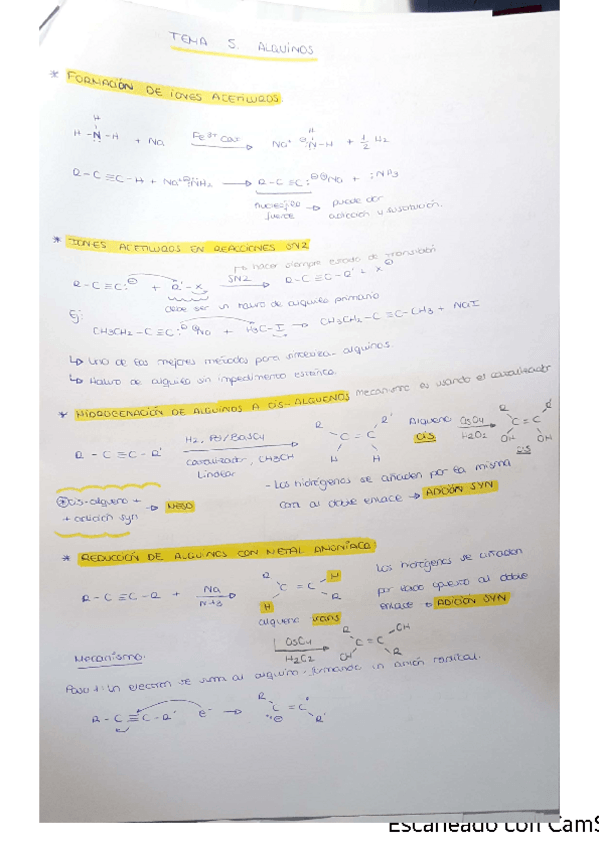 TEMA 5. ALQUINOS
* FORMACIÓN DE IONES ACETILUROS
H
H-N-H + Na Fe³⁺ cat → Na⁺ ⊖:N-H + 1/2 H₂
H
R-C≡C-H + Na⁺⊖:NH₂ → R-C≡C:⊖⊕Na + :NH₃
nucleófilo fuerte → puede dar adición y sustitución.
* IONES ACETILUROS EN REACCIONES SN2
hacer siempre estado de transición
R-C≡C:⊖ + R'-X SN2 → R-C≡C-R' + X⊖
debe ser un haluro de alquilo primario
Ej:
CH3CH2-C≡C:⊖⊕Na + H3C-I → CH3CH2-C≡C-CH3 + NaI
↳ Uno de los mejores métodos para sintetizar alquinos.
↳ Haluro de alquilo sin impedimento estérico.
* HIDROGENACIÓN DE ALQUINOS A CIS-ALQUENOS mecanismo es usando el catalizador
R-C≡C-R' H2, Pd/BaSO4 → R C=C R' Alqueno OsO4 R C=C R'
catalizador, CH3OH H H cis H2O2 OH OH
Lindlar cis
- Los hidrógenos se añaden por la misma
cara al doble enlace → ADICIÓN SYN
cis-alqueno +
+ adición syn → MESO
* REDUCCIÓN DE ALQUINOS CON METAL AMONIACO
R-C≡C-R + Na → R C=C H
NH3 H R
alqueno trans
Los hidrógenos se añaden
por lado opuesto al doble
enlace → ADICIÓN SYN
OsO4 R C=C OH
H2O2 OH R
Mecanismo:
Paso 1: Un electrón se suma al alquino formando un anión radical.
R-C≡C-R' e⁻ → R C=C R'
Escaneado con CamS